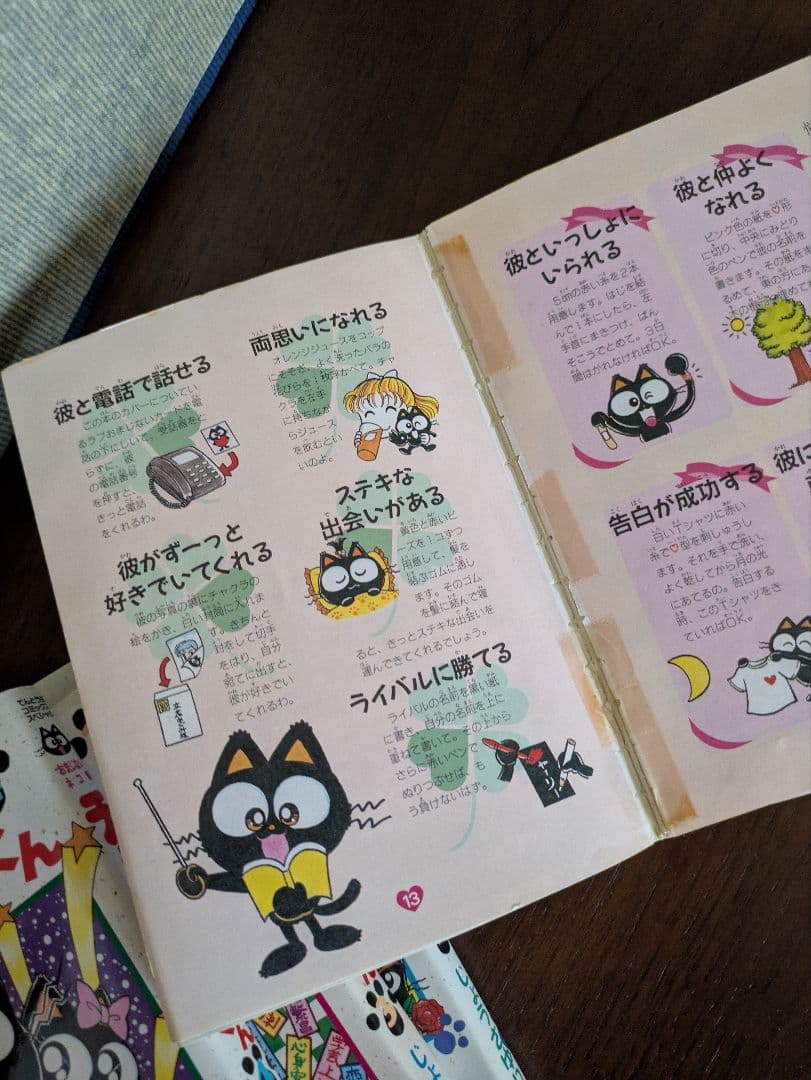 彼と電話で話せる
この本のカバーについてい
るラブおまじないカードを電
話の下にしいて、受話器をと
らずに、彼
の電話番号
を押すと、
きっと電話
をくれるわ。
両思いになれる
オレンジジュースをコップ
にそそぎ、よく洗ったバラの
花びらを1枚浮かべて。チャ
クラを左手
に持ちなが
らジュース
を飲むとい
いのよ。
彼がずーっと
好きでいてくれる
彼の写真の裏にチャクラの
絵をかき、白い封筒に入れま
す。きちんと
封をして切手
をはり、自分
宛てに出すと、
彼が好きでい
てくれるわ。
ステキな
出会いがある
黄色と赤いビ
ーズを1コずつ
用意して、髪を
結ぶゴムに通し
ます。そのゴム
を髪に結んで寝
ると、きっとステキな出会いを
運んできてくれるでしょう。
ライバルに勝てる
ライバルの名前を黒い紙
に書き、自分の名前を上に
重ねて書いて。その上から
さらに赤いペンで
ぬりつぶせば、も
う負けないはず。
13
彼といっしょに
いられる
5cmの赤い糸を2本
用意します。はじを結
んで1本にしたら、左
手首にまきつけ、ばん
そうこうでとめて。3日
間はがれなければOK。
彼と仲よく
なれる
ピンク色の紙を♡形
に切り、中央にみどり
色のペンで彼の名前を
書きます。その紙をま
るめて、東の方に
告白が成功する
白いTシャツに赤い
糸で♡型を刺しゅうし
ます。それを手で洗い、
よく乾してから月の光
にあてるの。告白する
時、このTシャツをき
ていればOK。
彼に
てんとう虫
コミックス
スペシャル